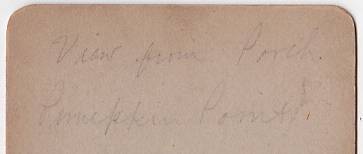 View from Porch.
Pumpkin Point